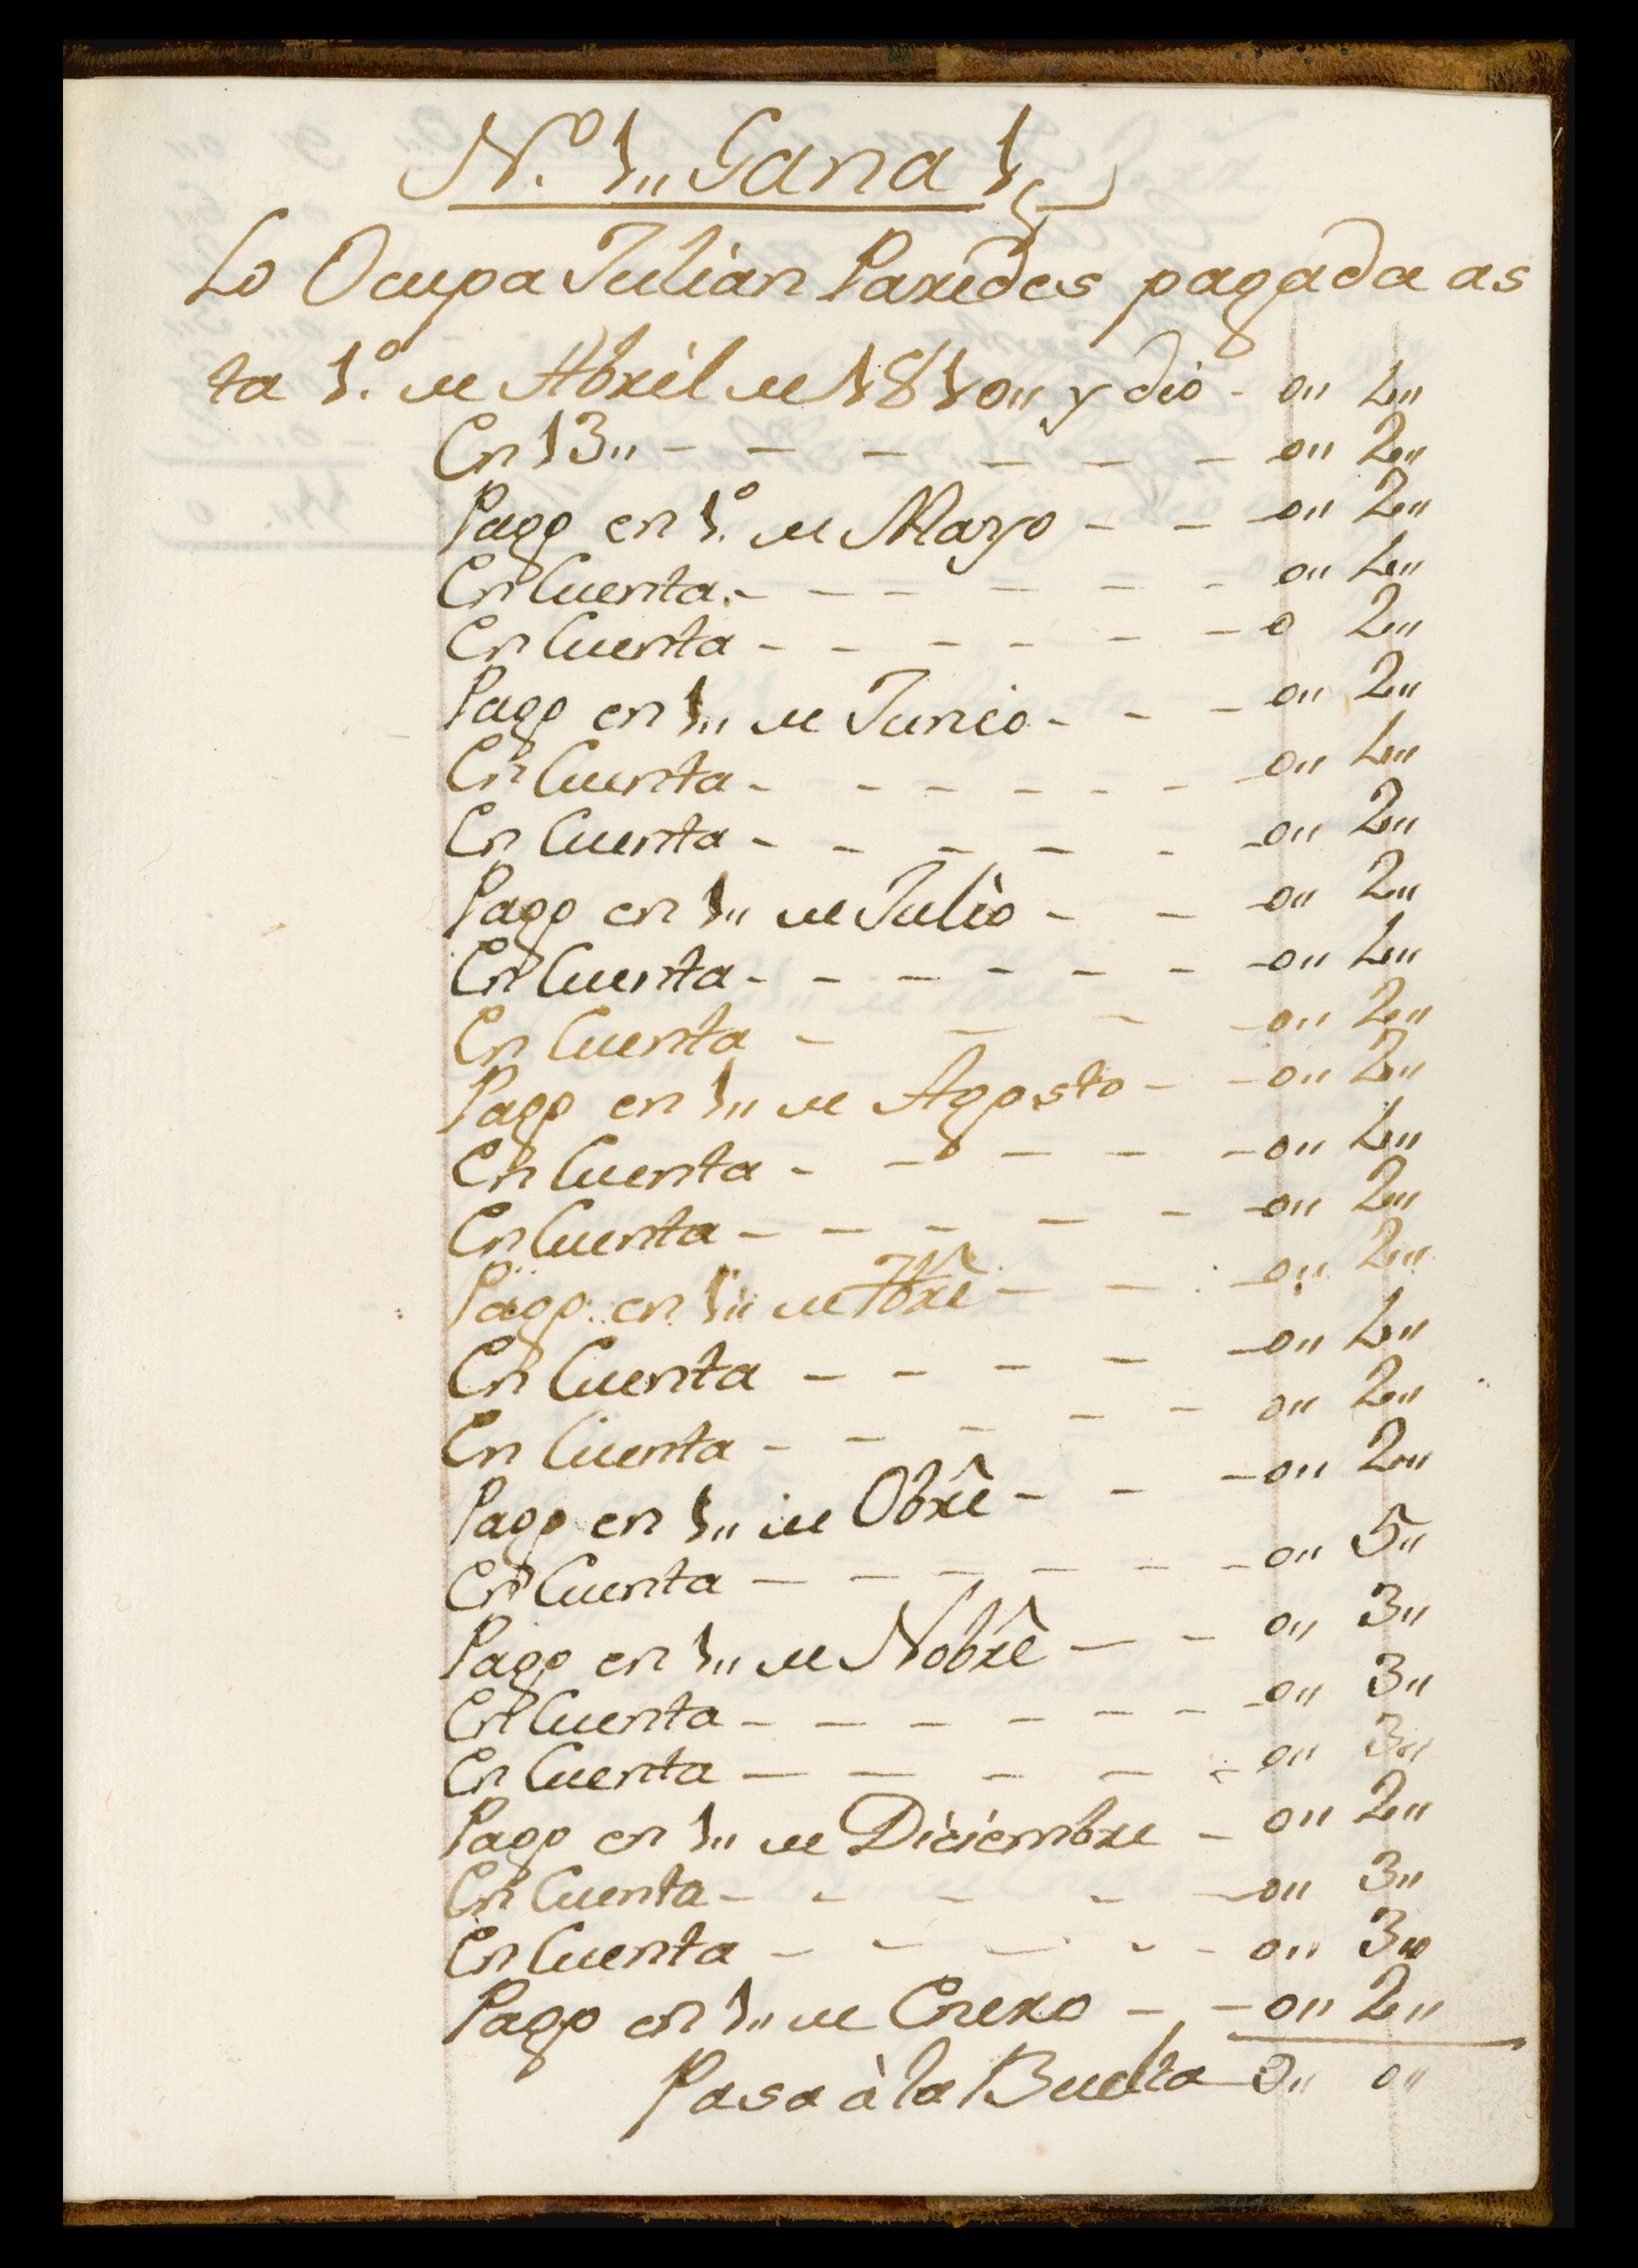 N.º 1,, Gana 1,,
Lo Ocupa Julian Paredes pagada as
ta 1.º de Abril de 1810,, y dio - 0,, 1,,
En 13,, - - - - - - 0,, 2,,
Pago en 1.º de Mayo - - 0,, 2,,
En Cuenta - - - - - - 0,, 1,,
En Cuenta - - - - - - 0 2,,
Pago en 1,, de Junio - - - 0,, 2,,
En Cuenta - - - - - - 0,, 1,,
En Cuenta - - - - - - 0,, 2,,
Pago en 1,, de Julio - - - 0,, 2,,
En Cuenta - - - - - - - 0,, 1,,
En Cuenta - - - - 0,, 2,,
Pago en 1,, de Agosto - - 0,, 2,,
En Cuenta - - - - - 0,, 1,,
En Cuenta - - - - - - 0,, 2,,
Pago en 1,, de 7bre - - - 0,, 2,,
En Cuenta - - - - - 0,, 1,,
En Cuenta - - - - - 0,, 2,,
Pago en 1,, de Obre - - - 0,, 2,,
En Cuenta - - - - - - 0,, 5,,
Pago en 1,, de Nobre - - 0,, 3,,
En Cuenta - - - - - - - 0,, 3,,
En Cuenta - - - - - 0,, 3,,
Pago en 1,, de Diciembre - 0,, 2,,
En Cuenta - - - - - 0,, 3,,
En Cuenta - - - - - 0,, 3,,
Pago en 1,, de Enero - - 0,, 2,,
Pasa à la Buelta 0,, 0,,